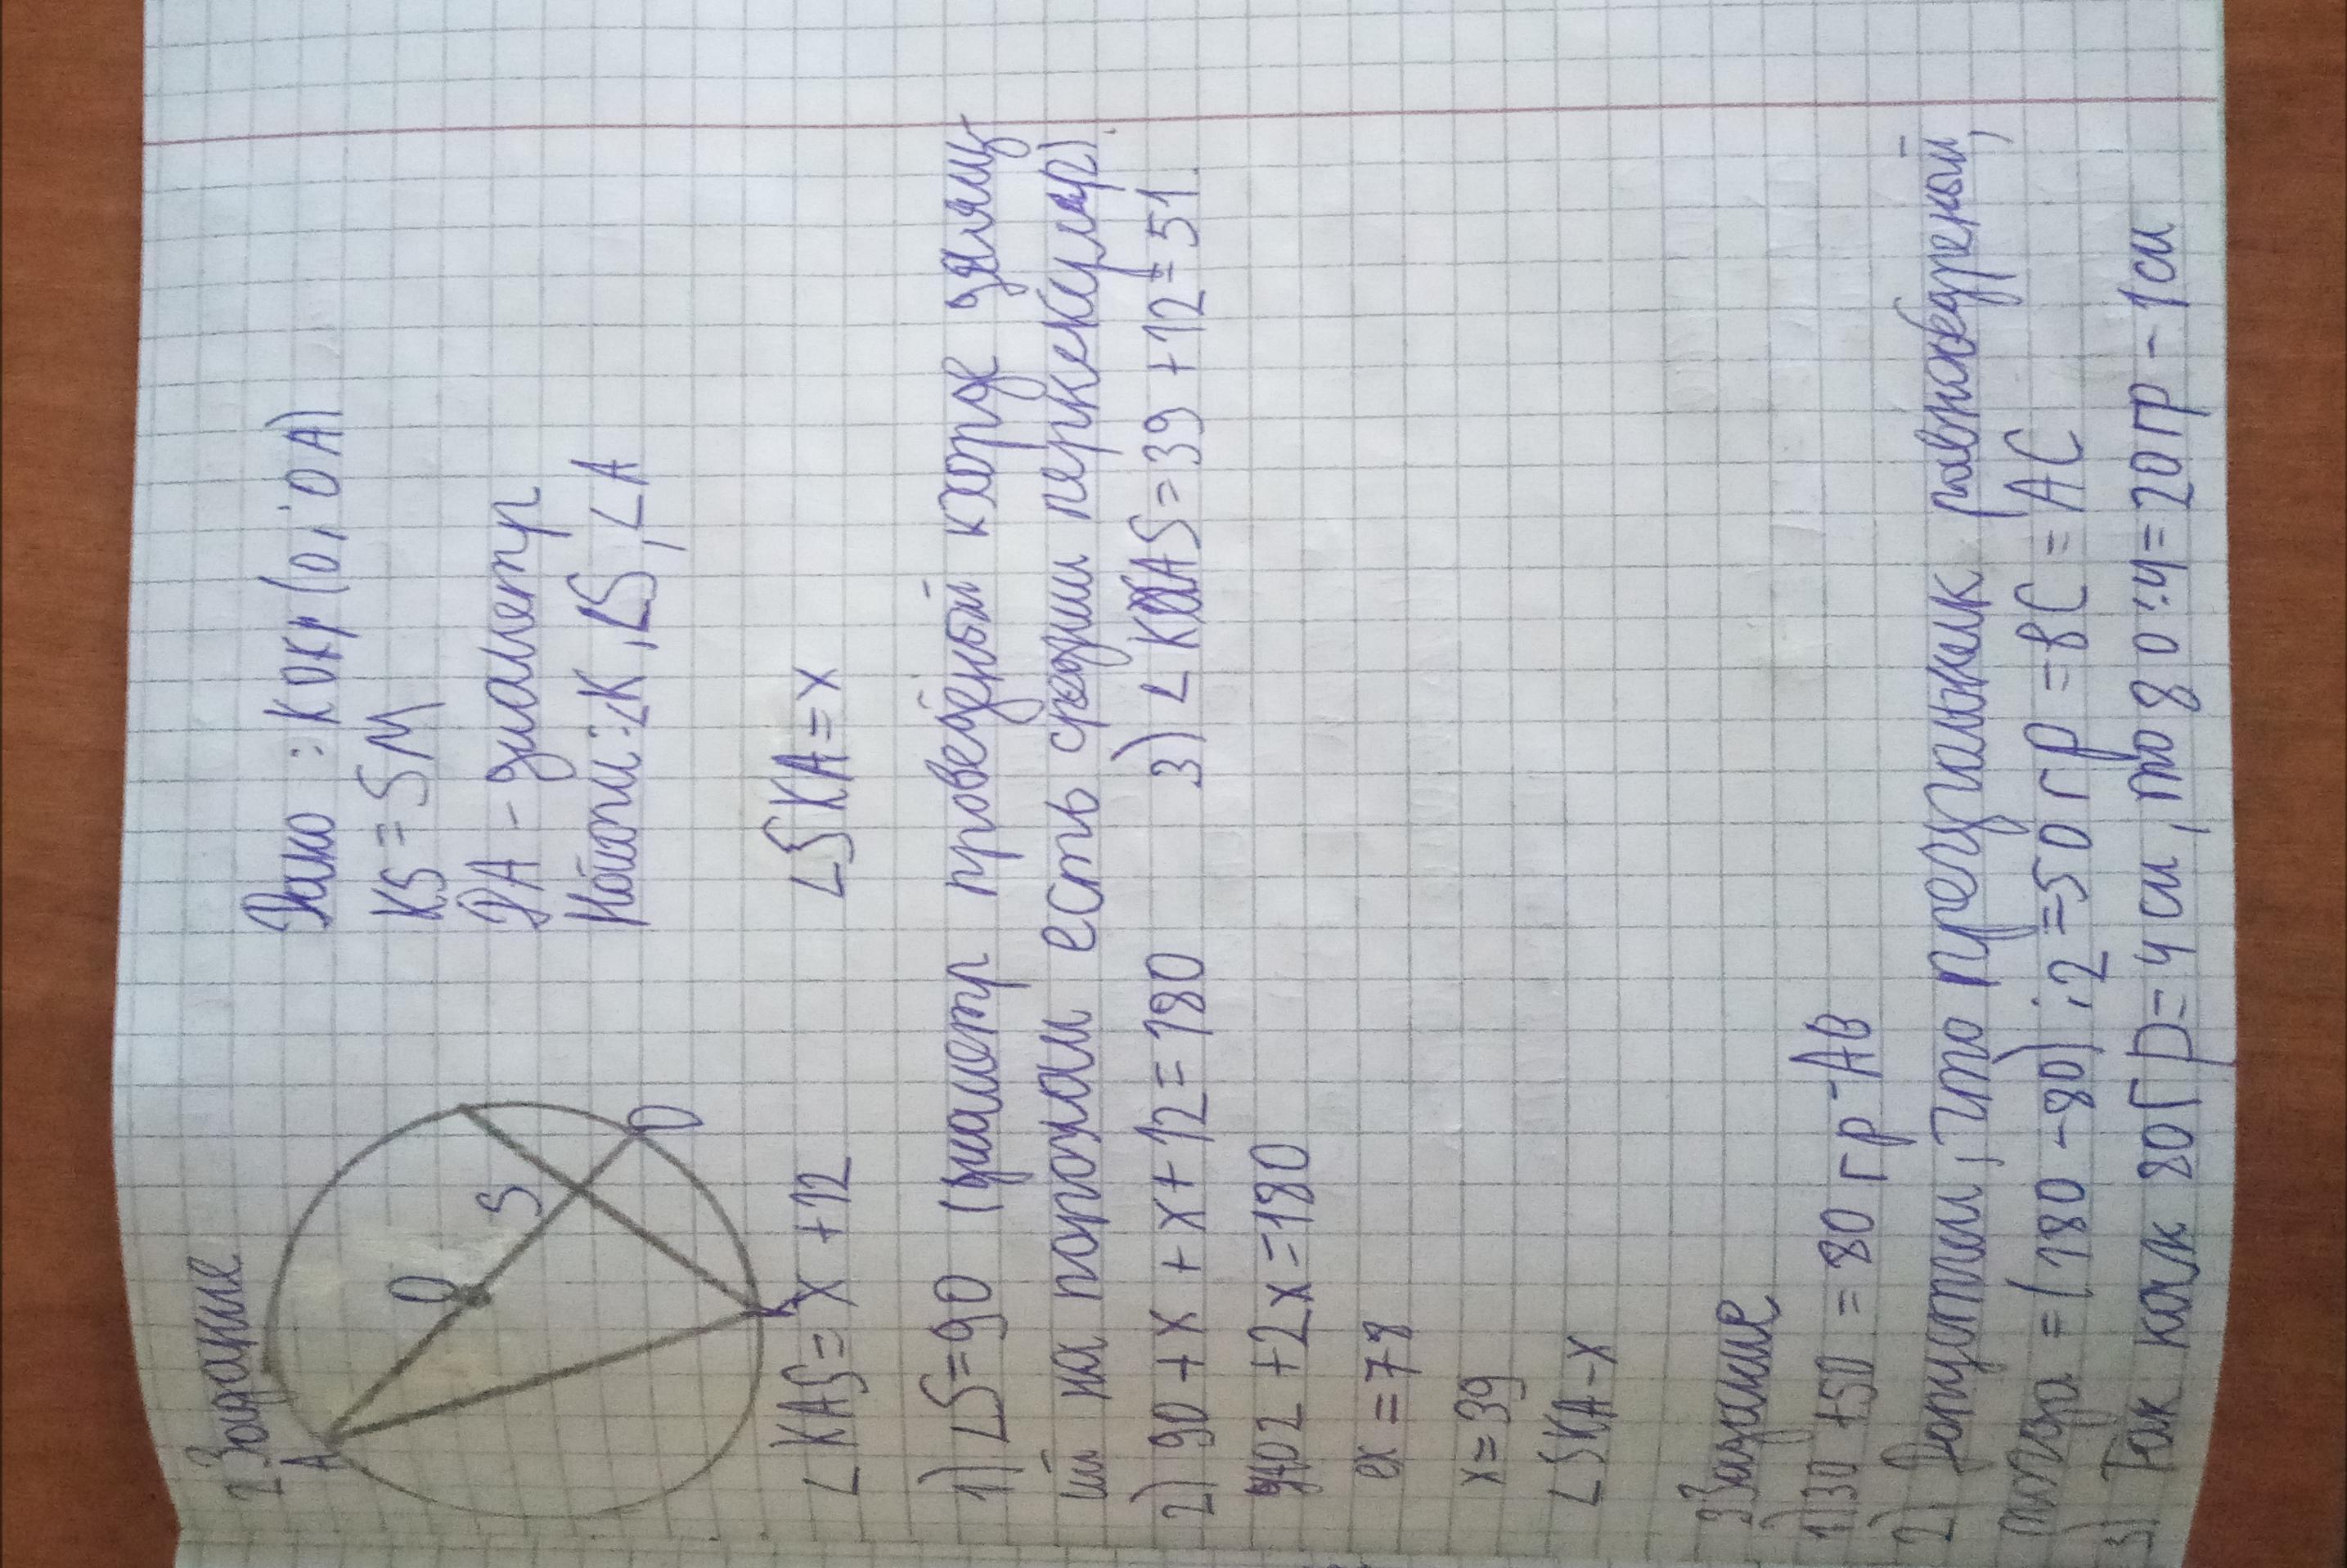 2 Задание
А
О
S
D
К
Дано : К окр (О; ОА)
KS = SM
DA - диаметр
Найти: ∠K, ∠S, ∠A
∠KAS = x + 12
∠SKA = x
1) ∠S = 90 (диаметр проведеной хорде делящ
ий на пополам есть средии
2) 90 + x + x + 12 = 180
3) ∠KAS = 39 + 12 = 51
102 + 2x = 180
= 78
x = 39
∠SKA - x
3 Задание
1) 30 + 50 = 80 гр - АВ
2) Допустим, что треугольник равнобедреной,
тогда = (180 - 80) : 2 = 50 гр = ВС = АС
3) Так как 80 гр = 4 см, то 80 : 4 = 20 гр - 1 см